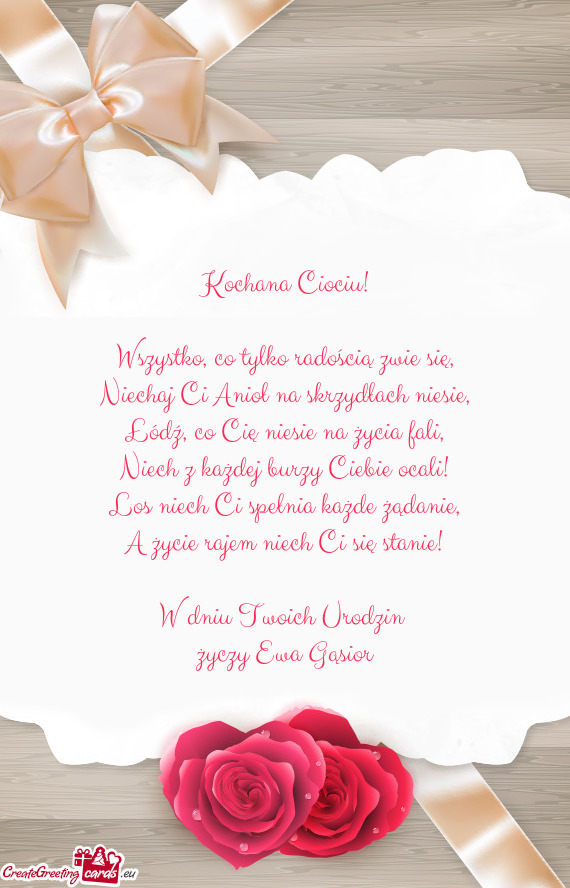 Kochana Ciociu!
Wszystko, co tylko radością zwie się,
Niechaj Ci Anioł na skrzydłach niesie,
Łódź, co Cię niesie na życia fali,
Niech z każdej burzy Ciebie ocali!
Los niech Ci spełnia każde żądanie,
A życie rajem niech Ci się stanie!
W dniu Twoich Urodzin
życzy Ewa Gąsior
CreateGreeting cards .eu